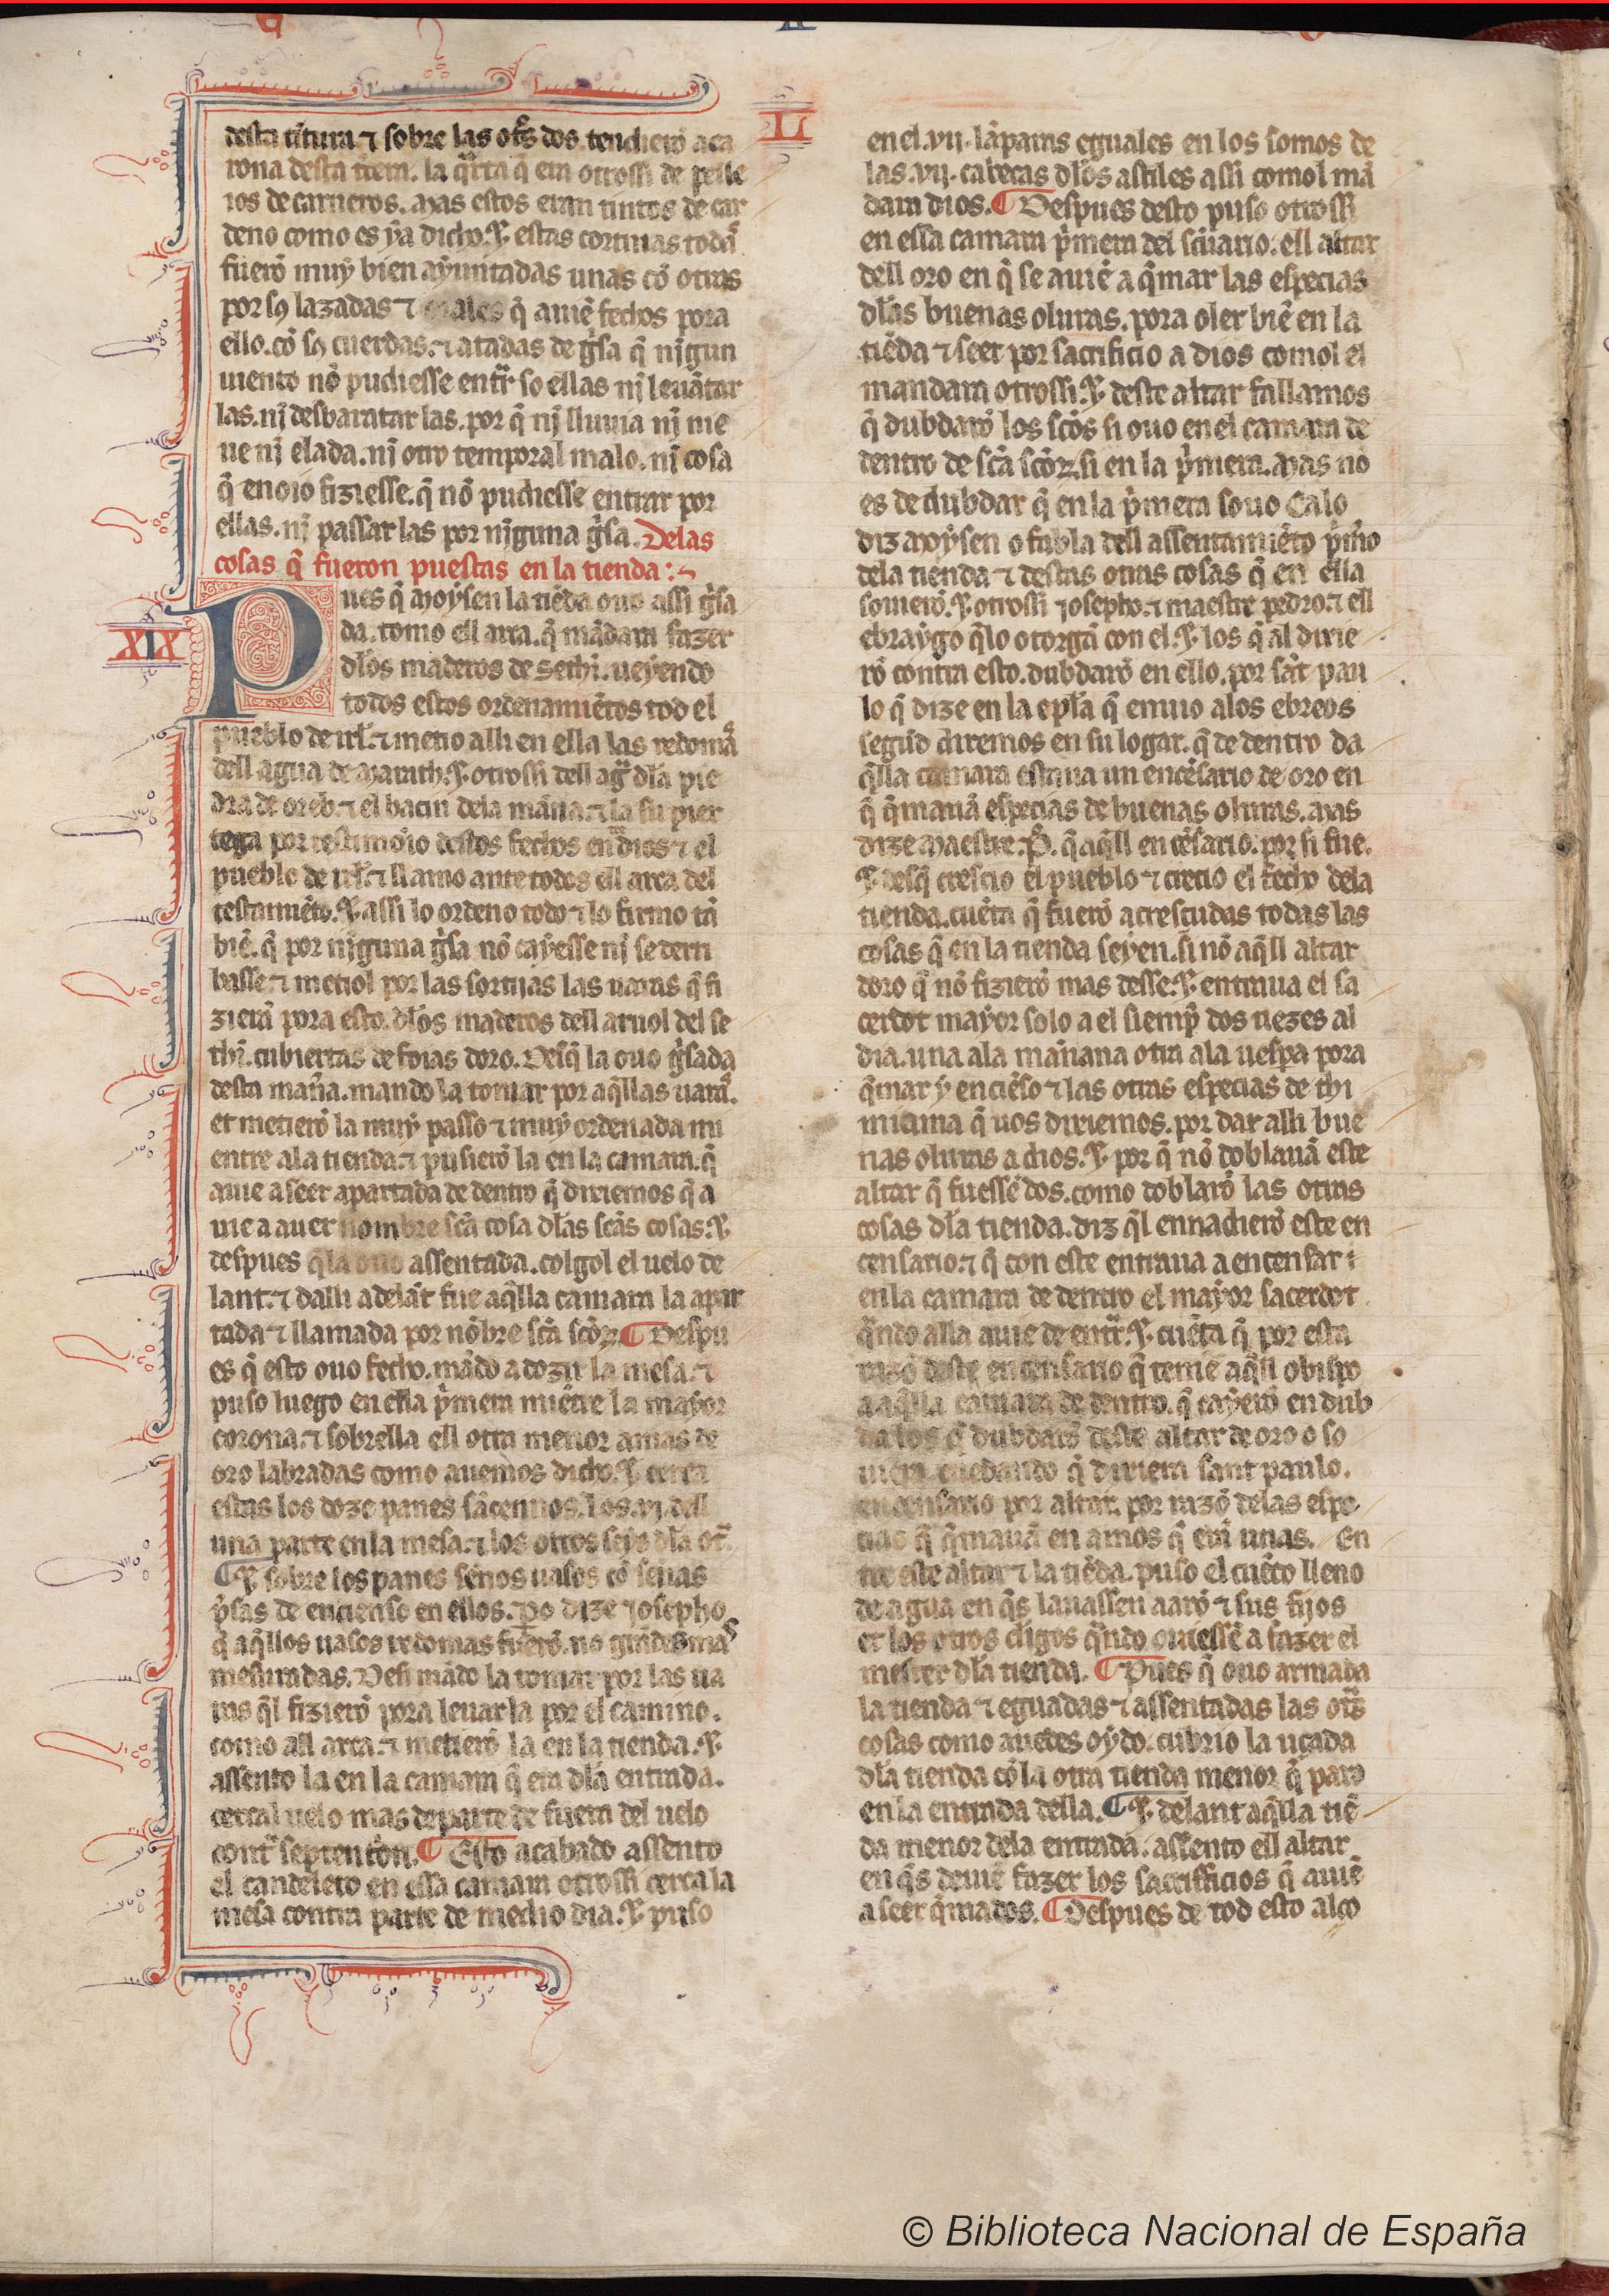 desta tītura ⁊ sobre las ot̃s dos tendierõ aca
rona desta tr̃cera. la q̃rta q̃ era otrossi de pelle
ios de carneros. mas estos eran tintos de car
deno como es ẏa dicho. ⁊ estas cortinas todas
fuerõ muẏ bien aẏuntadas unas cõ otras
por sꝯ lazadas ⁊ oiales q̃ auiẽ fechos pora
ello. cõ sꝯ cuerdas. ⁊ atadas de g̃sa q̃ nīgun
uiento nõ pudiesse entr̃ so ellas nj̃ leuãtar
las. nj̃ desbaratar las. por q̃ nj̃ lluuia nj̃ nie
ue nj̃ elada. nj̃ otro temporal malo. nj̃ cosa
q̃ enoio fiziesse. q̃ nõ pudiesse entrar por
ellas. nj̃ passar las por nīguna g̃sa. Delas
cosas q̃ fueron puestas en la tienda:
XIX
Pues q̃ moẏsen la tiẽda ouo assi g̃sa
da. tomo ell arca. q̃ mãdara fazer
dłos maderos de sethi. ueẏendo
todos estos ordenamiẽtos tod el
pueblo de irł. ⁊ metio alli en ella las redomas
dell agua de marath. ⁊ otrossi dell ag̃ dła pie
dra de oreb. ⁊ el bacin dela mãna. ⁊ la su pier
tega por testimoĩo destos fechos entr̃ dios ⁊ el
pueblo de irł. ⁊ llamo ante todos ell arca del
testamẽto. ⁊ assi lo ordeno todo ⁊ lo firmo tã
biẽ. q̃ por nīguna g̃sa nõ caẏesse nj̃ se derri
basse. ⁊ metiol por las sortijas las uaras q̃ fi
zierã pora esto. dłos maderos dell aruol del se
thĩ. cubiertas de foias doro. Desq̃ la ouo g̃sada
desta mañra. mando la tomar por aq̃llas uaras.
et metierõ la muẏ passo ⁊ muẏ ordenada mi
entre ala tienda. ⁊ pusierõ la en la camara. q̃
auie a seer apartada de dentro q̃ dixiemos q̃ a
uie a auer nombre scã cosa dłas scãs cosas. ⁊
despues q̃ la ouo assentada. colgol el uelo de
lant. ⁊ dalli adelãt fue aq̃lla camara la apar
tada ⁊ llamada por nõbre scã scõꝝ. ¶ Despu
es q̃ esto ouo fecho. mãdo adozir la mesa. ⁊
puso luego en ella p̃mera miẽtre la mayor
corona. ⁊ sobrella ell otra menor amas de
oro labradas como auemos dicho. ⁊ cerca
estas los doze panes sãcennos. los .vj. dell
una parte en la mesa. ⁊ los otros seẏs dła ot̃.
¶ ⁊ sobre los panes sẽnos uasos cõ señas
p̃sas de encienso en ellos. po dize iosepho
q̃ aq̃llos uasos redomas fuerõ. no grãdes mas
mesuradas. Desi mãdo la tomar por las ua
ras q̃l fizierõ pora leuar la por el camino.
como all arca. ⁊ metierõ la en la tienda. ⁊
assento la en la camara q̃ era dła entrada.
cercal uelo mas departe de fuera del uelo
contr̃ septentiõn. ¶ Esto acabado assento
el candelero en essa camara otrossi cerca la
mesa contra parte de medio dia. ⁊ puso
L
en el .vij. lãparas eguales en los somos de
las .vij. cabecas dłos astiles assi comol mã
dara dios. ¶ Despues desto puso otrossi
en essa camara p̃mera del sc̃uario. ell altar
dell oro en q̃ se auiẽ a q̃mar las especias
dłas buenas oluras. pora oler biẽ en la
tiẽda ⁊ seer por sacrificio a dios comol el
mandara otrossi. ⁊ deste altar fallamos
q̃ dubdarõ los scõs si ouo en el camara de
dentro de scã scõꝝ. si en la p̃mera. mas no
es de dubdar q̃ en la p̃mera souo Ca lo
diz moẏsen o fabla dell assentamiẽto p̃mo
dela tienda ⁊ destas otras cosas q̃ en ella
souierõ. ⁊ otrossi iosepho. ⁊ maestre pedro. ⁊ ell
ebraẏgo q̃ lo otorgã con el. ⁊ los q̃ al dixie
rõ contra esto. dubdarõ en ello. por sãt pau
lo q̃ dize en la epła q̃ enuio alos ebreos
segũd diremos en su logar. q̃ de dentro da
q̃lla camara estaua un encẽsario de oro en
q̃ q̃mauã especias de buenas oluras. mas
dize maestre .P̃. q̃ aq̃ll encẽsario. por si fue.
⁊ desq̃ crescio el pueblo ⁊ crecio el fecho dela
tienda. cuẽta q̃ fuerõ acrescudas todas las
cosas q̃ en la tienda seẏen. si nõ aq̃ll altar
doro q̃ nõ fizierõ mas desse. ⁊ entraua el sa
cerdot mayor solo a el siemp̃ dos uezes al
dia. una ala mañana otra ala uespa pora
q̃mar ẏ enciẽso ⁊ las otras especias de thi
miama q̃ uos dixiemos. por dar alli bue
nas oluras a dios. ⁊ por q̃ nõ doblauã este
altar q̃ fuessẽ dos. como doblarõ las otras
cosas dła tienda. diz q̃l ennadierõ este en
censario. ⁊ q̃ con este entraua a encensar
en la camara de dentro el mayor sacerdot
q̃ndo alla auie de entr̃. ⁊ cuẽta q̃ por esta
razõ deste encensario q̃ tenie aq̃ll obispo
a aq̃lla camara de dentro. q̃ caẏerõ en dub
da los q̃ dubdarõ deste altar de oro o so
uiera cuedando q̃ dixiera sant paulo.
encensario por altar. por razõ delas espe
cias q̃ q̃mauã en amos q̃ erã unas. En
tre este altar ⁊ la tiẽda. puso el cuẽco lleno
de agua en q̃ s lauassen aarõ ⁊ sus fijos
et los otros cłigos q̃ndo ouiessẽ a fazer el
mester dła tienda. ¶ Pues q̃ ouo armada
la tienda ⁊ eguadas ⁊ assentadas las ot̃s
cosas como auedes oẏdo. cubrio la uçada
dła tienda cõ la otra tienda menor q̃ paro
en la entrada della. ¶ ⁊ delant aq̃lla tiẽ
da menor dela entrada. assento ell altar
en q̃ s deuiẽ fazer los sacrifficios q̃ auiẽ
a seer q̃mados. ¶ Despues de tod esto alço
© Biblioteca Nacional de España